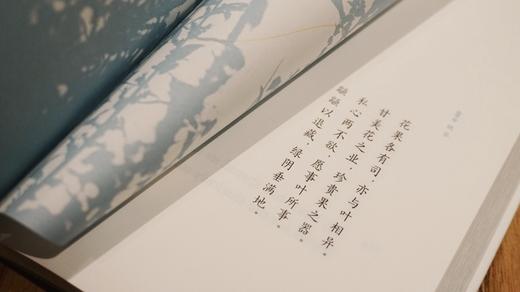 花果各有司，亦与叶相异。
甘美花之业，珍贵果之器。
私心两不欲，愿事叶所事。
以退藏，绿阴垂满地。